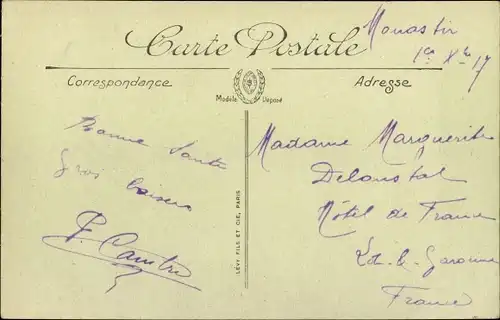 Monastir
1er Xbre 17
Carte Postale
Correspondance
Adresse
Modèle Déposé
Bonne Santé
Gros baisers
LÉVY FILS ET CIE, PARIS
Madame Marguerite
Hôtel de France
Lot-&-Garonne
France